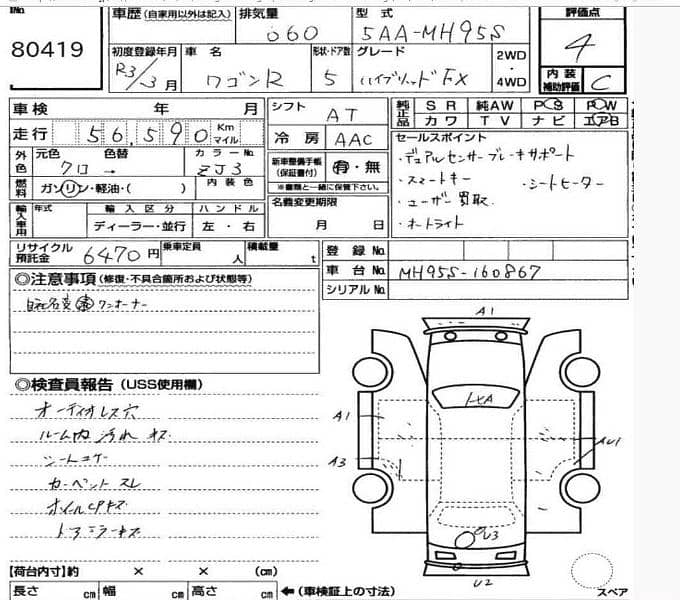 80419
車歴(自家用以外は記入)
排気量
型式
評価点
660
5AA-MH95S
4
初度登録年月
車名
形状・ドア数
グレード
2WD
・
4WD
内装
補助評価
C
R3/3月
ワゴンR
5
ハイブリッドFX
車検 年 月
シフト
AT
純正品
SR 純AW PS PW
カワ TV ナビ エアB
走行 56,590 Km
マイル
冷房
AAC
セールスポイント
・デュアルセンサーブレーキサポート
・スマートキー ・シートヒーター
・ユーザー買取.
・オートライト
外色
元色 色替
カラーNo.
クロ→
ZJ3
新車整備手帳
(保証書付)
有・無
※書類と一緒に保管下さい。
燃料
ガソリン・軽油・( )
内装色
名義変更期限
月 日
輸入車用
年式
輸入区分
ハンドル
ディーラー・並行
左・右
リサイクル
預託金
6470円
乗車定員
人
積載量
t
登録No.
車台No.
MH95S-160867
シリアルNo.
◎注意事項(修復・不具合箇所および状態等)
ワンオーナー
◎検査員報告(USS使用欄)
オーディオレス穴
ルーム内汚れキズ
シートコゲ
カーペットスレ
ドアミラーキズ
A1
A1
A3
U3
U2
【荷台内寸】約 × × (cm)
長さ cm 幅 cm 高さ cm
←(車検証上の寸法)
スペア